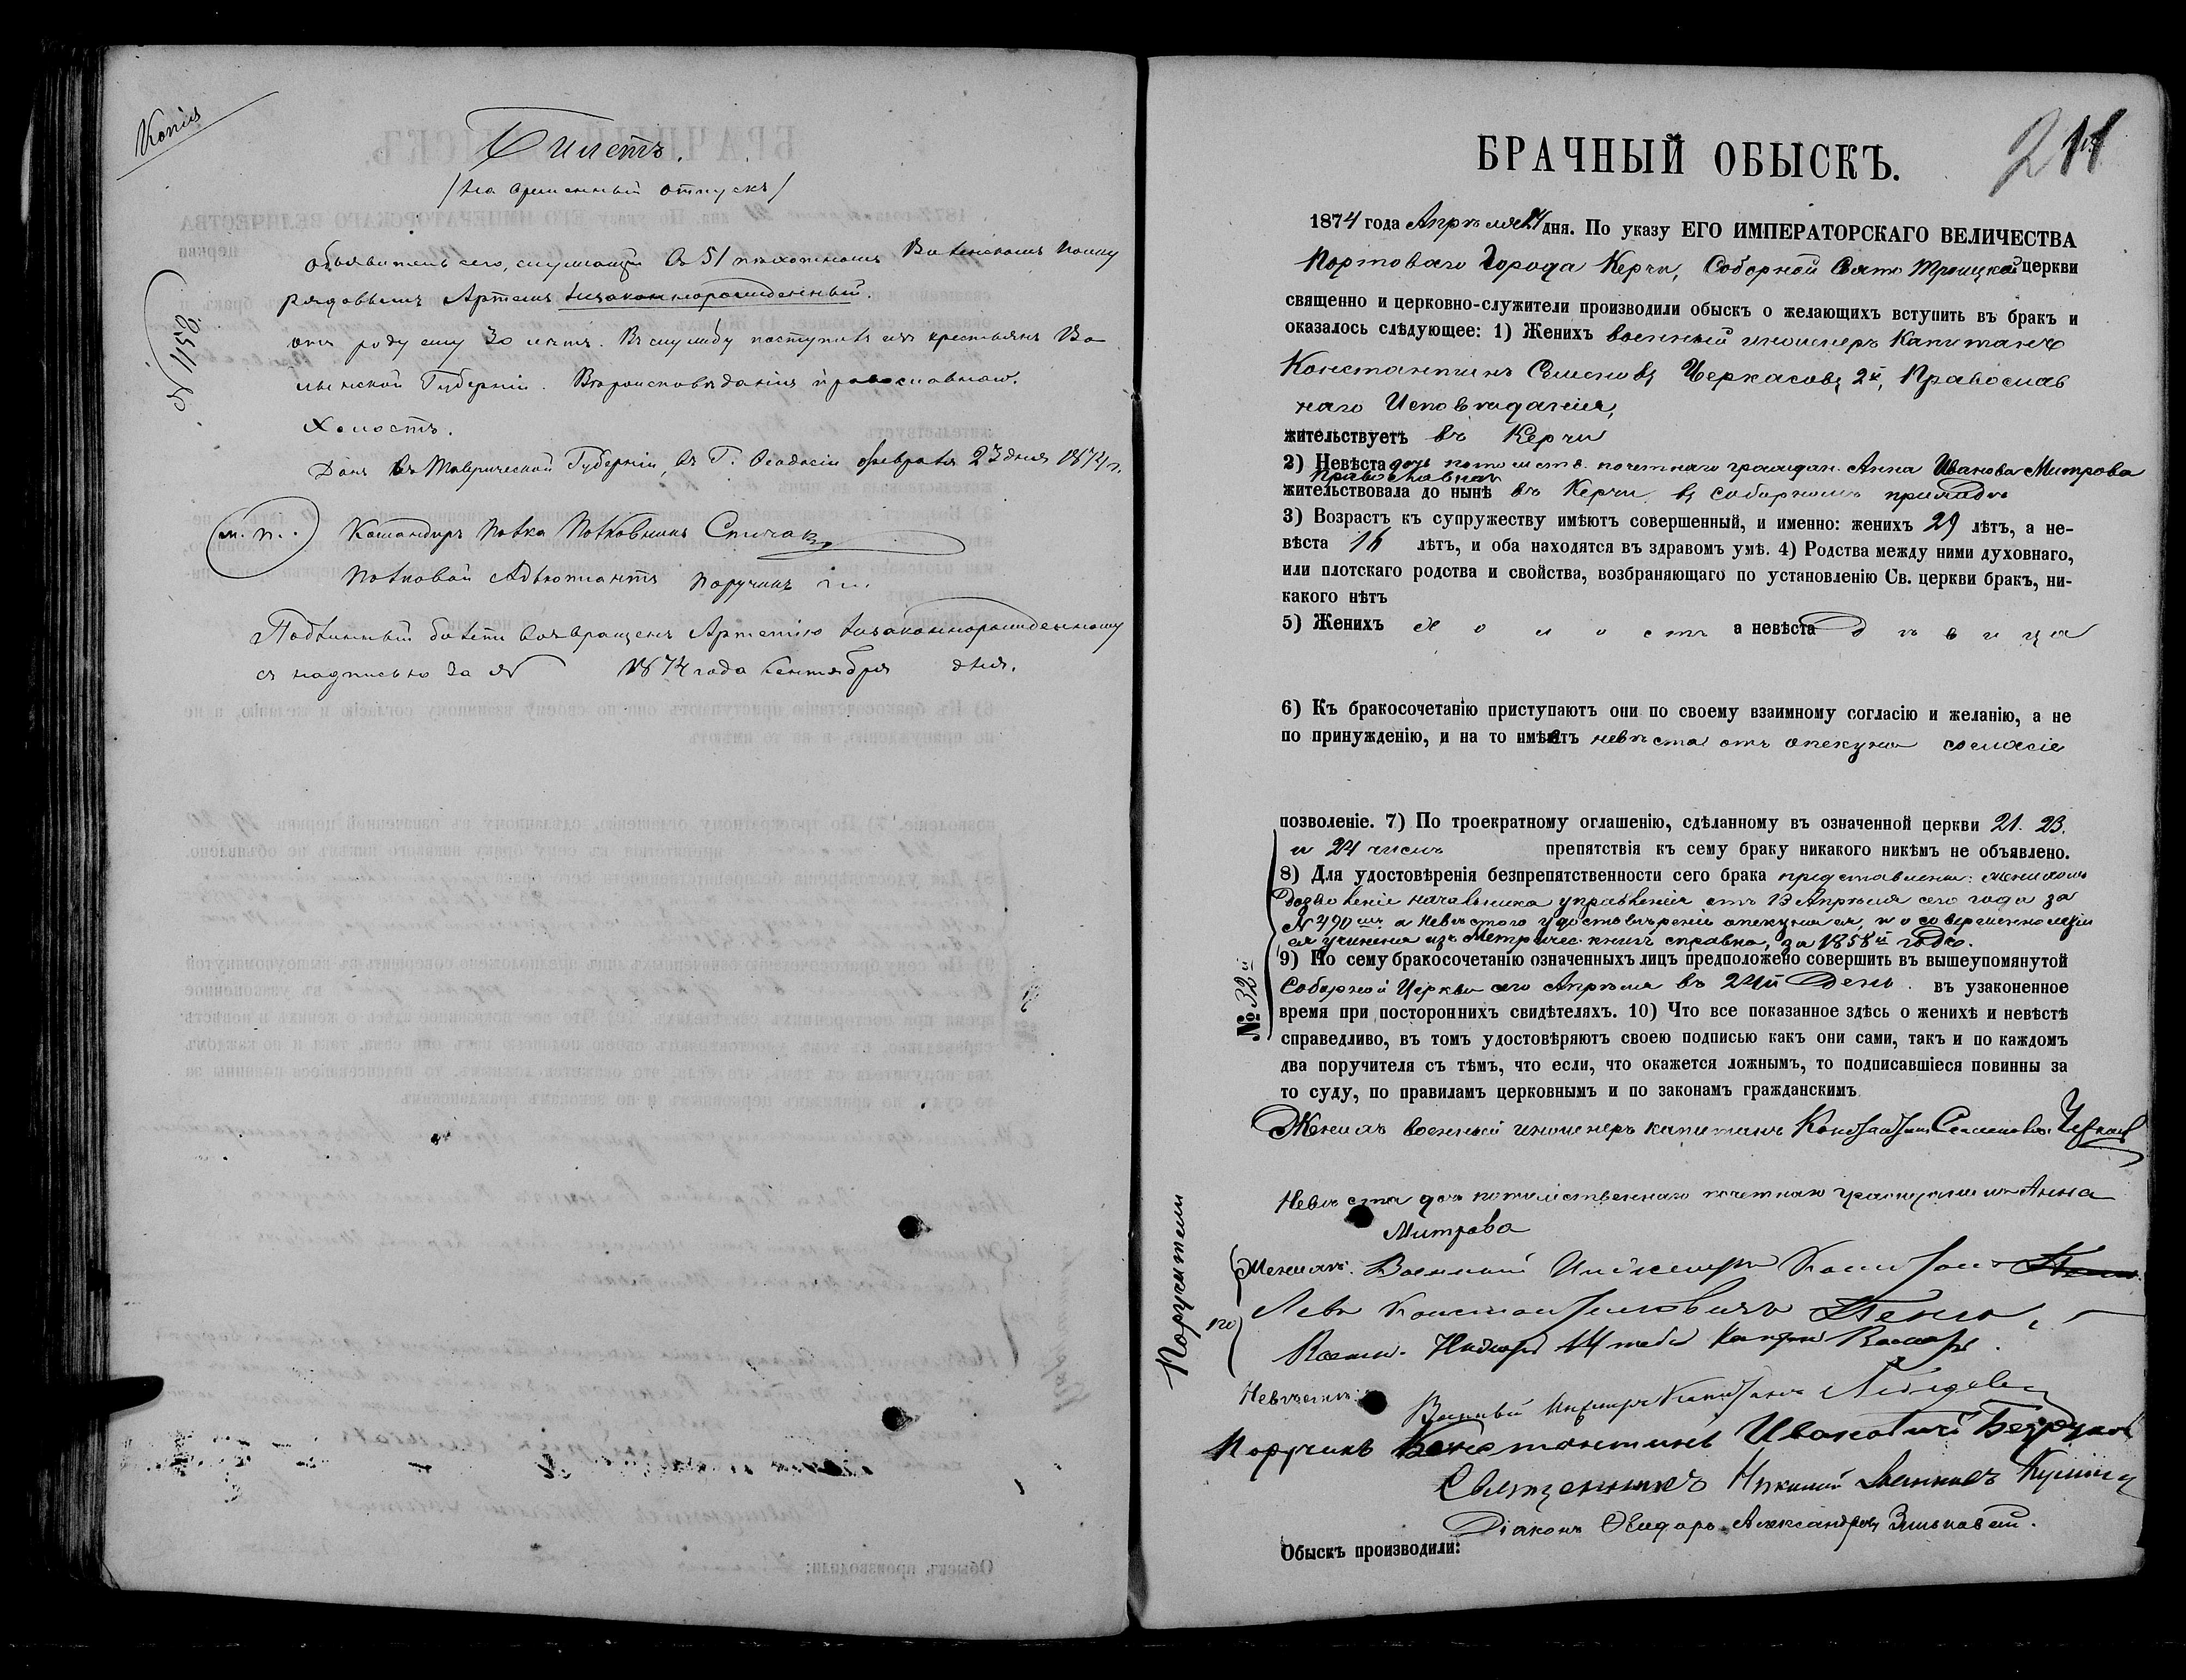 Копія
Билетъ.
/на временный отпускъ/
№ 1158.
Объявитель сего, служащій въ 51 пѣхотномъ Виленскомъ полку
рядовымъ Артемъ Незаконнорожденный.
отъ роду ему 30 лѣтъ. Въ службу поступилъ изъ крестьянъ Во-
лынской Губерніи. Вѣроисповѣданія православнаго.
Холостъ.
Данъ въ Таврической Губерніи, въ Г. Ѳеодосіи февраля 23 дня 1874 г.
М. П. Командиръ полка Полковникъ
Полковой Адъютантъ поручикъ
Подлинный билетъ возвращенъ Артемію Незаконнорожденному
съ надписью за № 1874 года сентября дня.
БРАЧНЫЙ ОБЫСКЪ.
1874 года Апрѣля 24 дня. По указу ЕГО ИМПЕРАТОРСКАГО ВЕЛИЧЕСТВА
Портоваго Города Керчи, Соборной Свято Троицкой церкви
священно и церковно-служители производили обыскъ о желающихъ вступить въ бракъ и
оказалось слѣдующее: 1) Женихъ военный инженеръ Капитанъ
Константинъ Семеновъ Черкасовъ 2й, Православ
наго Исповѣданія,
жительствуетъ въ Керчи
2) Невѣста дочь потомств. почетнаго граждан. Анна Иванова Митрова
Православная
жительствовала до нынѣ въ Керчи въ соборномъ приходѣ
3) Возрастъ къ супружеству имѣютъ совершенный, и именно: женихъ 29 лѣтъ, а не-
вѣста 16 лѣтъ, и оба находятся въ здравомъ умѣ. 4) Родства между ними духовнаго,
или плотскаго родства и свойства, возбраняющаго по установленію Св. церкви бракъ, ни-
какого нѣтъ
5) Женихъ холостъ а невѣста дѣвица
6) Къ бракосочетанію приступаютъ они по своему взаимному согласію и желанію, а не
по принужденію, и на то имѣетъ невѣста отъ опекуна согласіе
позволеніе. 7) По троекратному оглашенію, сдѣланному въ означенной церкви 21. 23.
и 24 чиселъ препятствія къ сему браку никакого никѣмъ не объявлено.
8) Для удостовѣренія безпрепятственности сего брака представлены: женихомъ
дозволеніе начальника управленія отъ 13 Апрѣля сего года за
№ 490мъ а невѣстою удостовѣреніе опекуна ея, и о совершеннолѣтіи
ея учинена изъ Метричес. книгъ справка, за 1858й годъ.
№ 32й
9) По сему бракосочетанію означенныхъ лицъ предположено совершить въ вышеупомянутой
Соборной Церкви сего Апрѣля въ 24й День. въ узаконенное
время при постороннихъ свидѣтеляхъ. 10) Что все показанное здѣсь о женихѣ и невѣстѣ
справедливо, въ томъ удостовѣряютъ своею подписью какъ они сами, такъ и по каждомъ
два поручителя съ тѣмъ, что если, что окажется ложнымъ, то подписавшіеся повинны за
то суду, по правиламъ церковнымъ и по законамъ гражданскимъ
Женихъ военный инженеръ капитанъ Константинъ Семеновъ Черкасовъ
Невѣста дочь потомственнаго почетнаго гражданина Анна
Митрова
Поручители
по
Женихѣ: Военный Инженеръ Капитанъ
Левъ Константиновичъ
Военн. Инженеръ Штабсъ Капитанъ
Невѣстѣ: Военный Инженеръ Капитанъ
Поручикъ Константинъ Ивановичъ
Священникъ
Діаконъ Ѳеодоръ Александровъ
Обыскъ производили: